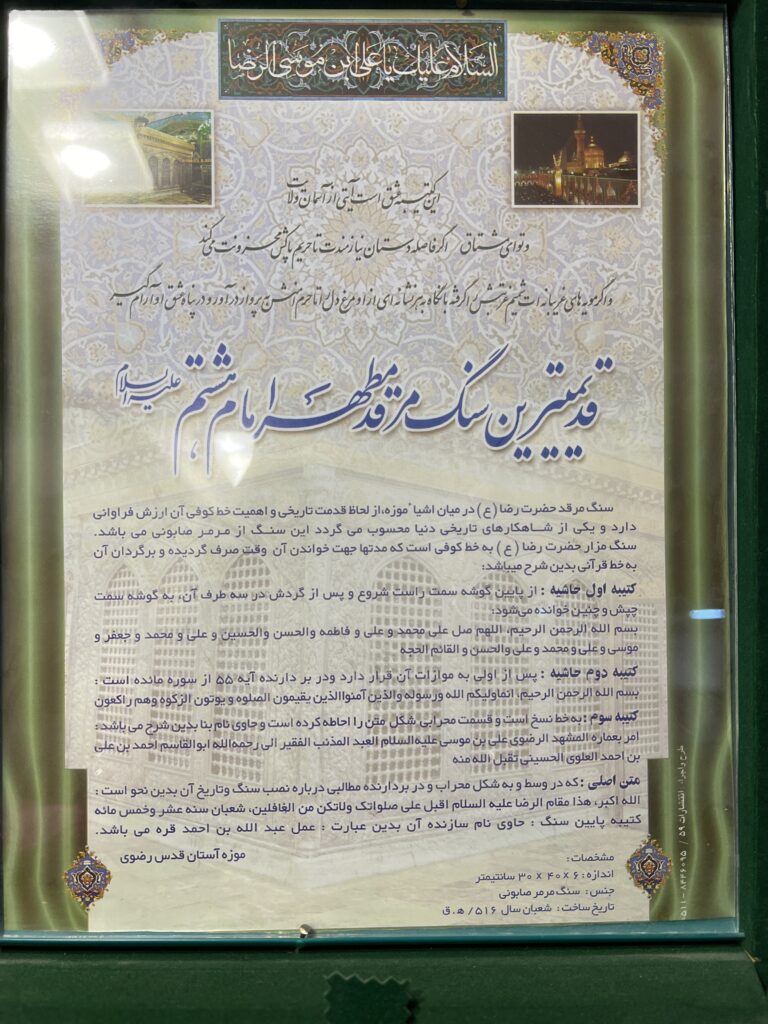 السلام علیک یا علی ابن موسی الرضا
این کتیبه عشق است آیتی از آسمان ولایت
و تو ای مشتاق اگر فاصله دستان نیازمندت تا حریم پاکش محزونت می کند
و اگر مویه های غریبانه ات شمیم غربتش را گرفته با نگاه به هر نشانه ای از او مرغ دل را تا حرم امنش به پرواز درآور و در پناه عشق او آرام گیر
قدیمیترین سنگ مرقد مطهر امام هشتم علیه السلام
سنگ مرقد حضرت رضا (ع) در میان اشیاء موزه، از لحاظ قدمت تاریخی و اهمیت خط کوفی آن ارزش فراوانی
دارد و یکی از شاهکارهای تاریخی دنیا محسوب می گردد این سنگ از مرمر صابونی می باشد.
سنگ مزار حضرت رضا (ع) به خط کوفی است که مدتها جهت خواندن آن وقت صرف گردیده و برگردان آن
به خط قرآنی بدین شرح میباشد:
کتیبه اول حاشیه : از پایین گوشه سمت راست شروع و پس از گردش در سه طرف آن، به گوشه سمت
چپش و چنین خوانده می‌شود:
بسم الله الرحمن الرحیم، اللهم صل علی محمد و علی و فاطمه والحسن والحسین و علی و محمد و جعفر و
موسی و علی و محمد و علی والحسن و القائم الحجه
کتیبه دوم حاشیه : پس از اولی به موازات آن قرار دارد ودر بر دارنده آیه ۵۵ از سوره مائده است :
بسم الله الرحمن الرحیم، انماولیکم الله ورسوله والذین آمنواالذین یقیمون الصلوه و یوتون الزکوه وهم راکعون
کتیبه سوم : به خط نسخ است و قسمت محرابی شکل متن را احاطه کرده است و حاوی نام بنا بدین شرح می باشد :
امر بعماره المشهد الرضوی علی بن موسی علیه‌السلام العبد المذنب الفقیر الی رحمه‌الله ابوالقاسم احمد بن علی
بن احمد العلوی الحسینی تقبل الله منه
متن اصلی : که در وسط و به شکل محراب و در بردارنده مطالبی درباره نصب سنگ وتاریخ آن بدین نحو است :
الله اکبر، هذا مقام الرضا علیه السلام اقبل علی صلواتک ولاتکن من الغافلین، شعبان سنه عشر وخمس مائه
کتیبه پایین سنگ : حاوی نام سازنده آن بدین عبارت : عمل عبد الله بن احمد قره می باشد.
موزه آستان قدس رضوی
مشخصات :
اندازه : ۶ × ۴۰ × ۳۰ سانتیمتر
جنس : سنگ مرمر صابونی
تاریخ ساخت : شعبان سال ۵۱۶/ ه.ق
طرح و اجرا: انتشارات ۵۹ / ۸۴۴۶۰۹۵ – ۰۵۱۱